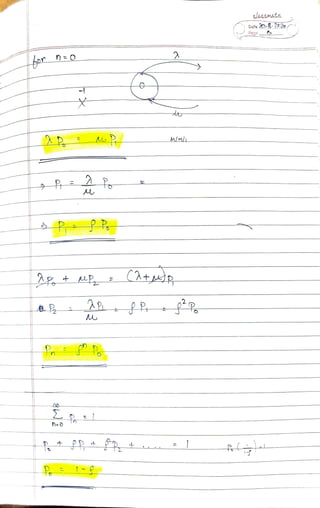 classmate
Date
Page
for n=0
λ
0
μ
λ P₀ = μ P₁ M/M/1
⇒ P₁ = λ/μ P₀ =
⇒ P₁ = ρ P₀
λP₀ + μP₂ = (λ+μ)P₁
P₂ = λP₁/μ = ρ P₁ = ρ² P₀
Pₙ = ρⁿ P₀
∞
Σ Pₙ = 1
n=0
P₀ + ρP₁ + + ..... = 1 P₀ ( ) = 1
P₀ = 1 - ρ